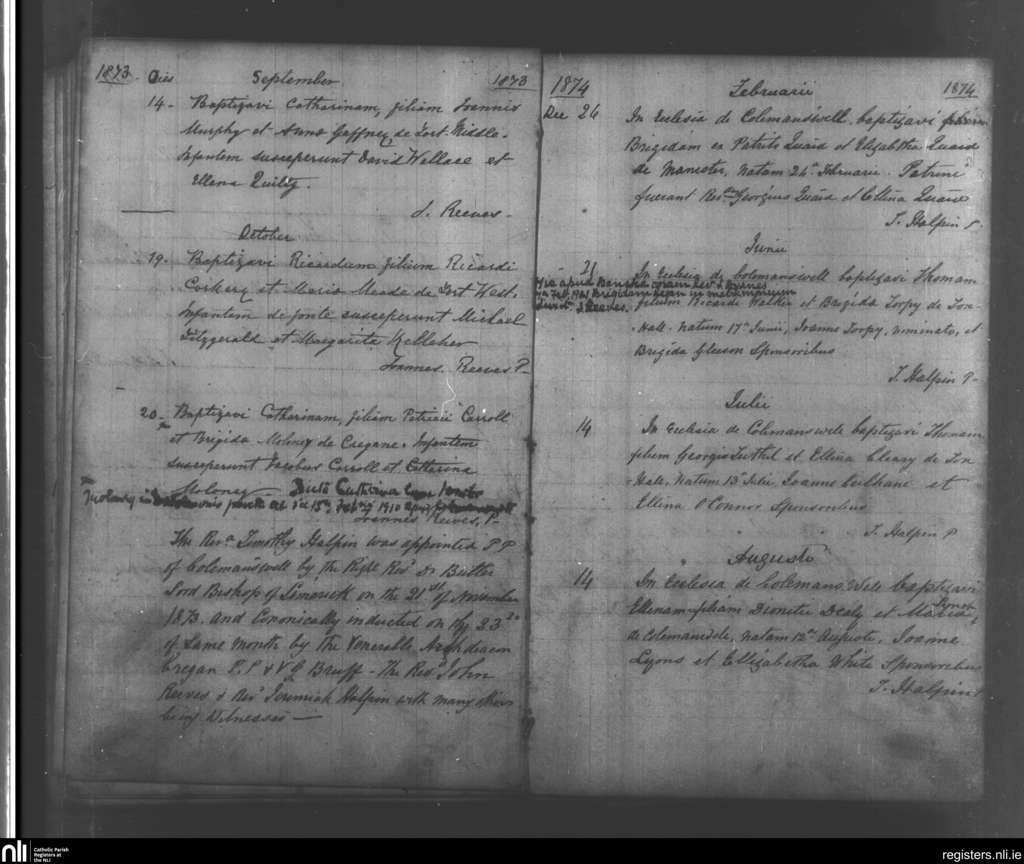 1873. Dies September 1873
14. Baptizavi Catharinam, filiam Joannis
Murphy et Anna Gaffney de Fort Middle.
Infantem susceperunt David Wallace et
Ellena Quilty.
J. Reeves.
October
19. Baptizavi Ricardum filium Ricardi
Corkery et Maria Meade de Fort West.
Infantem de fonte susceperunt Michael
Fitzgerald et Margarita Kelleher
Joannes Reeves P.
20. Baptizavi Catharinam, filiam Patricii Carroll
et Brigida Moloney de Cregane. Infantem
susceperunt Jacobus Carroll et Catherina
Moloney
Dicta Catherina
die 15a Feb 1910
Joannes Reeves, P.
The Revd. Timothy Halpin was appointed P P
of Colemanswell by the Right Revd Dr Butler
Lord Bishop of Limerick on the 21st of November
1873. and Canonically inducted on the 23rd
of same month by the Venerable Archdeacon
Cregan P.P & VG Bruff - The Revd John
Reeves & Revd Jeremiah Halpin with many others
being Witnesses
1874 Februarii 1874
Die 26 In Ecclesia de Colemanswell baptizavi
Brigidam ex Patritio Quaid et Elizabetha Quaid
de Manister, natam 24a Februarii. Patrini
fuerant Revdus Georgius Quaid et Ellena Quaid
T. Halpin P.
Junii
21 In Ecclesia de Colemanswell baptizavi Thomam
filium Ricardi Walker et Brigida Torpy de Fox-
Hall. natum 17a Junii, Joanne Torpy, et
Brigida Gleeson Sponsoribus
T. Halpin P.
apud Banska coram Revdo
in Feb. 1921 Brigidam in matrimonium
J Reeves.
Julii
14 In Ecclesia de Colemanswell baptizavi Thomam
filium Georgii et Ellena Cleary de Fox
Hall, natum 13a Julii, Joanne Culhane et
Ellena O'Connor Sponsoribus
T. Halpin P
Augusti
14 In Ecclesia de Colemans Well baptizavi
Ellenam filiam Dionisii Dealy et Maria Lynch
de Colemanswell, natam 12a Augusti, Joanne
Lyons et Ellizabetha White Sponsoribus
T. Halpin P
nli
Catholic Parish
Registers at
the NLI
registers.nli.ie